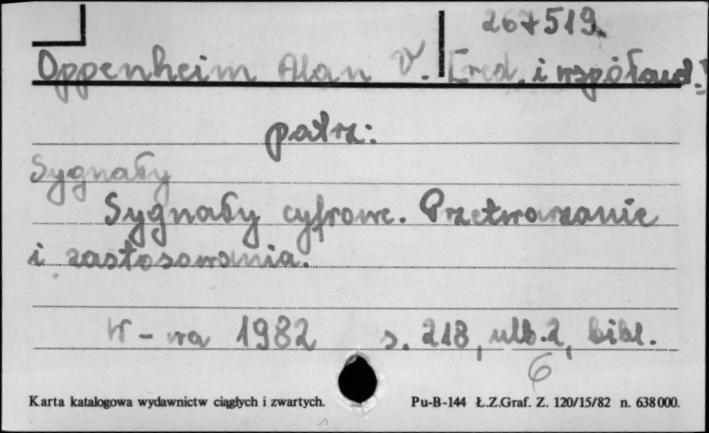 267519.
Oppenheim Alan V. [red. i współaut.]
patrz:
Sygnały
Sygnały cyfrowe. Przetwarzanie
i zastosowania.
W-wa 1982 s. 218, ulb. 2, bibl.
6
Karta katalogowa wydawnictw ciągłych i zwartych. Pu-B-144 Ł.Z.Graf. Z. 120/15/82 n. 638000.